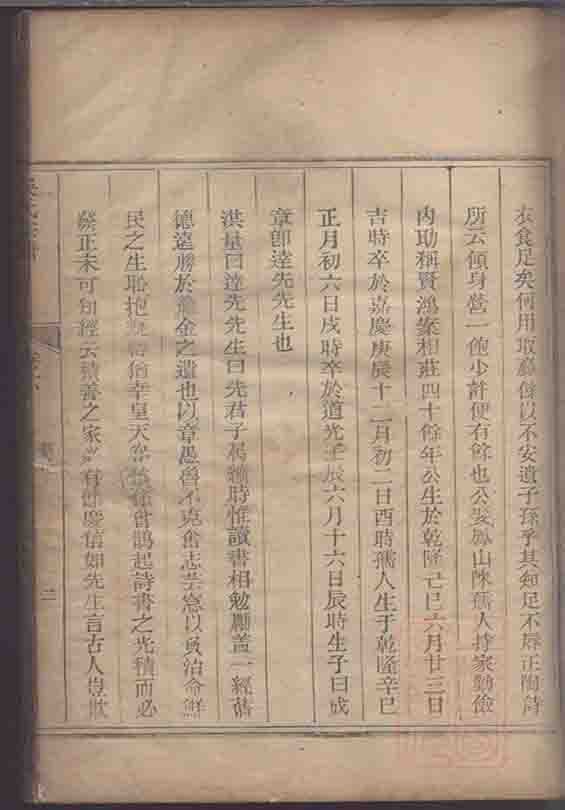 衣食足矣何用取蘇併以不安遺子孫乎其知足不辱正陶詩
所云傾身營一飽少許便有餘也公娶鳳山陳孺人持家勤儉
內助稱賢鴻案相莊四十餘年公生於乾隆己巳六月廿三日
吉時卒於嘉慶庚辰十二月初二日酉時孺人生于乾隆辛巳
正月初六日戌時卒於道光壬辰六月十六日辰時生子曰成
章卽達先先生也
洪量曰達先先生曰先君子易簀時惟讀書相勉厲蓋一經舊
德遠勝於籯金之遺也以章愚魯不克奮志芸窓以負治命鮮
民之生恥抱 猶幸皇天 會鵲起詩書之光積而必
發正未可知經云積善之家必有餘慶信如先生言古人豈欺
二